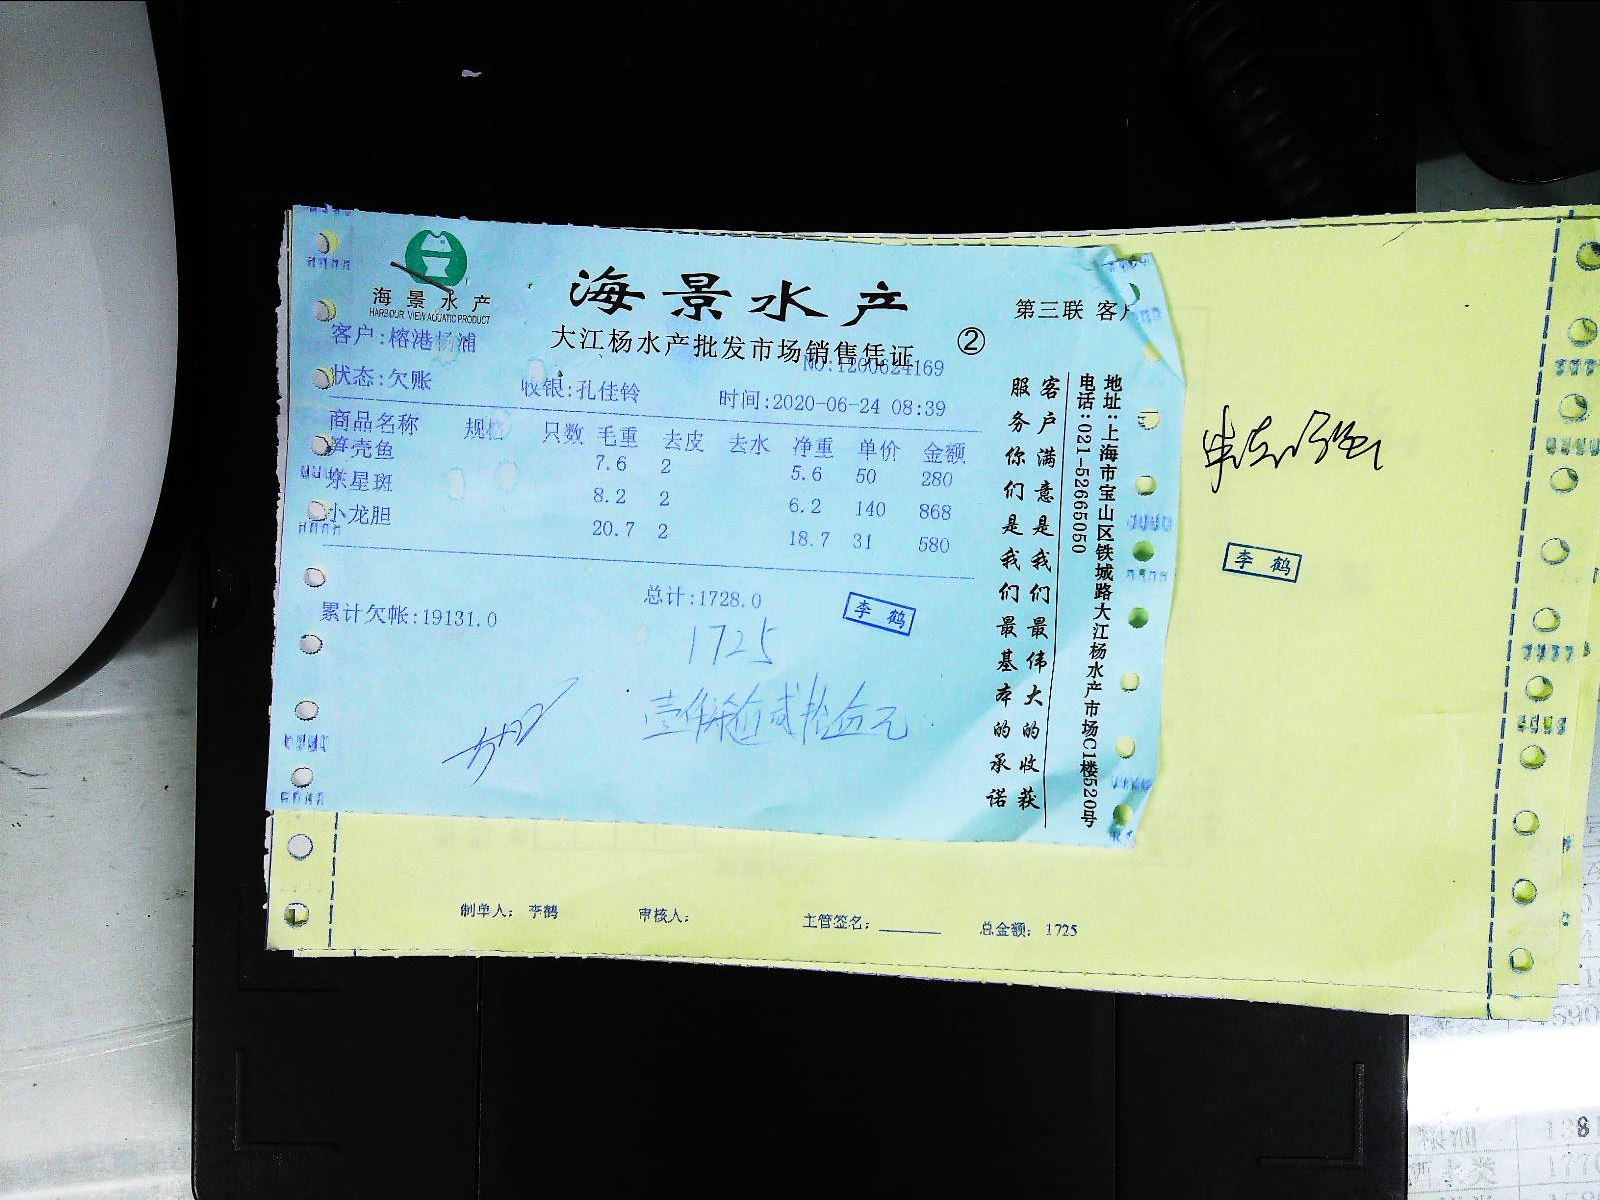 海景水产
HARBOUR VIEW AQUATIC PRODUCT
海景水产
第三联 客户
大江杨水产批发市场销售凭证 ②
NO:1200624169
客户:榕港杨浦
状态:欠账 收银:孔佳铃 时间:2020-06-24 08:39
商品名称 规格 只数 毛重 去皮 去水 净重 单价 金额
笋壳鱼 7.6 2 5.6 50 280
东星斑 8.2 2 6.2 140 868
小龙胆 20.7 2 18.7 31 580
总计:1728.0
累计欠帐:19131.0
李鹤
1725
壹仟柒佰贰拾伍元
客户满意是我们最伟大的收获
服务你们是我们最基本的承诺
地址:上海市宝山区铁城路大江杨水产市场C1楼520号
电话:021-52665050
李鹤
制单人: 李鹤 审核人: 主管签名: 总金额: 1725